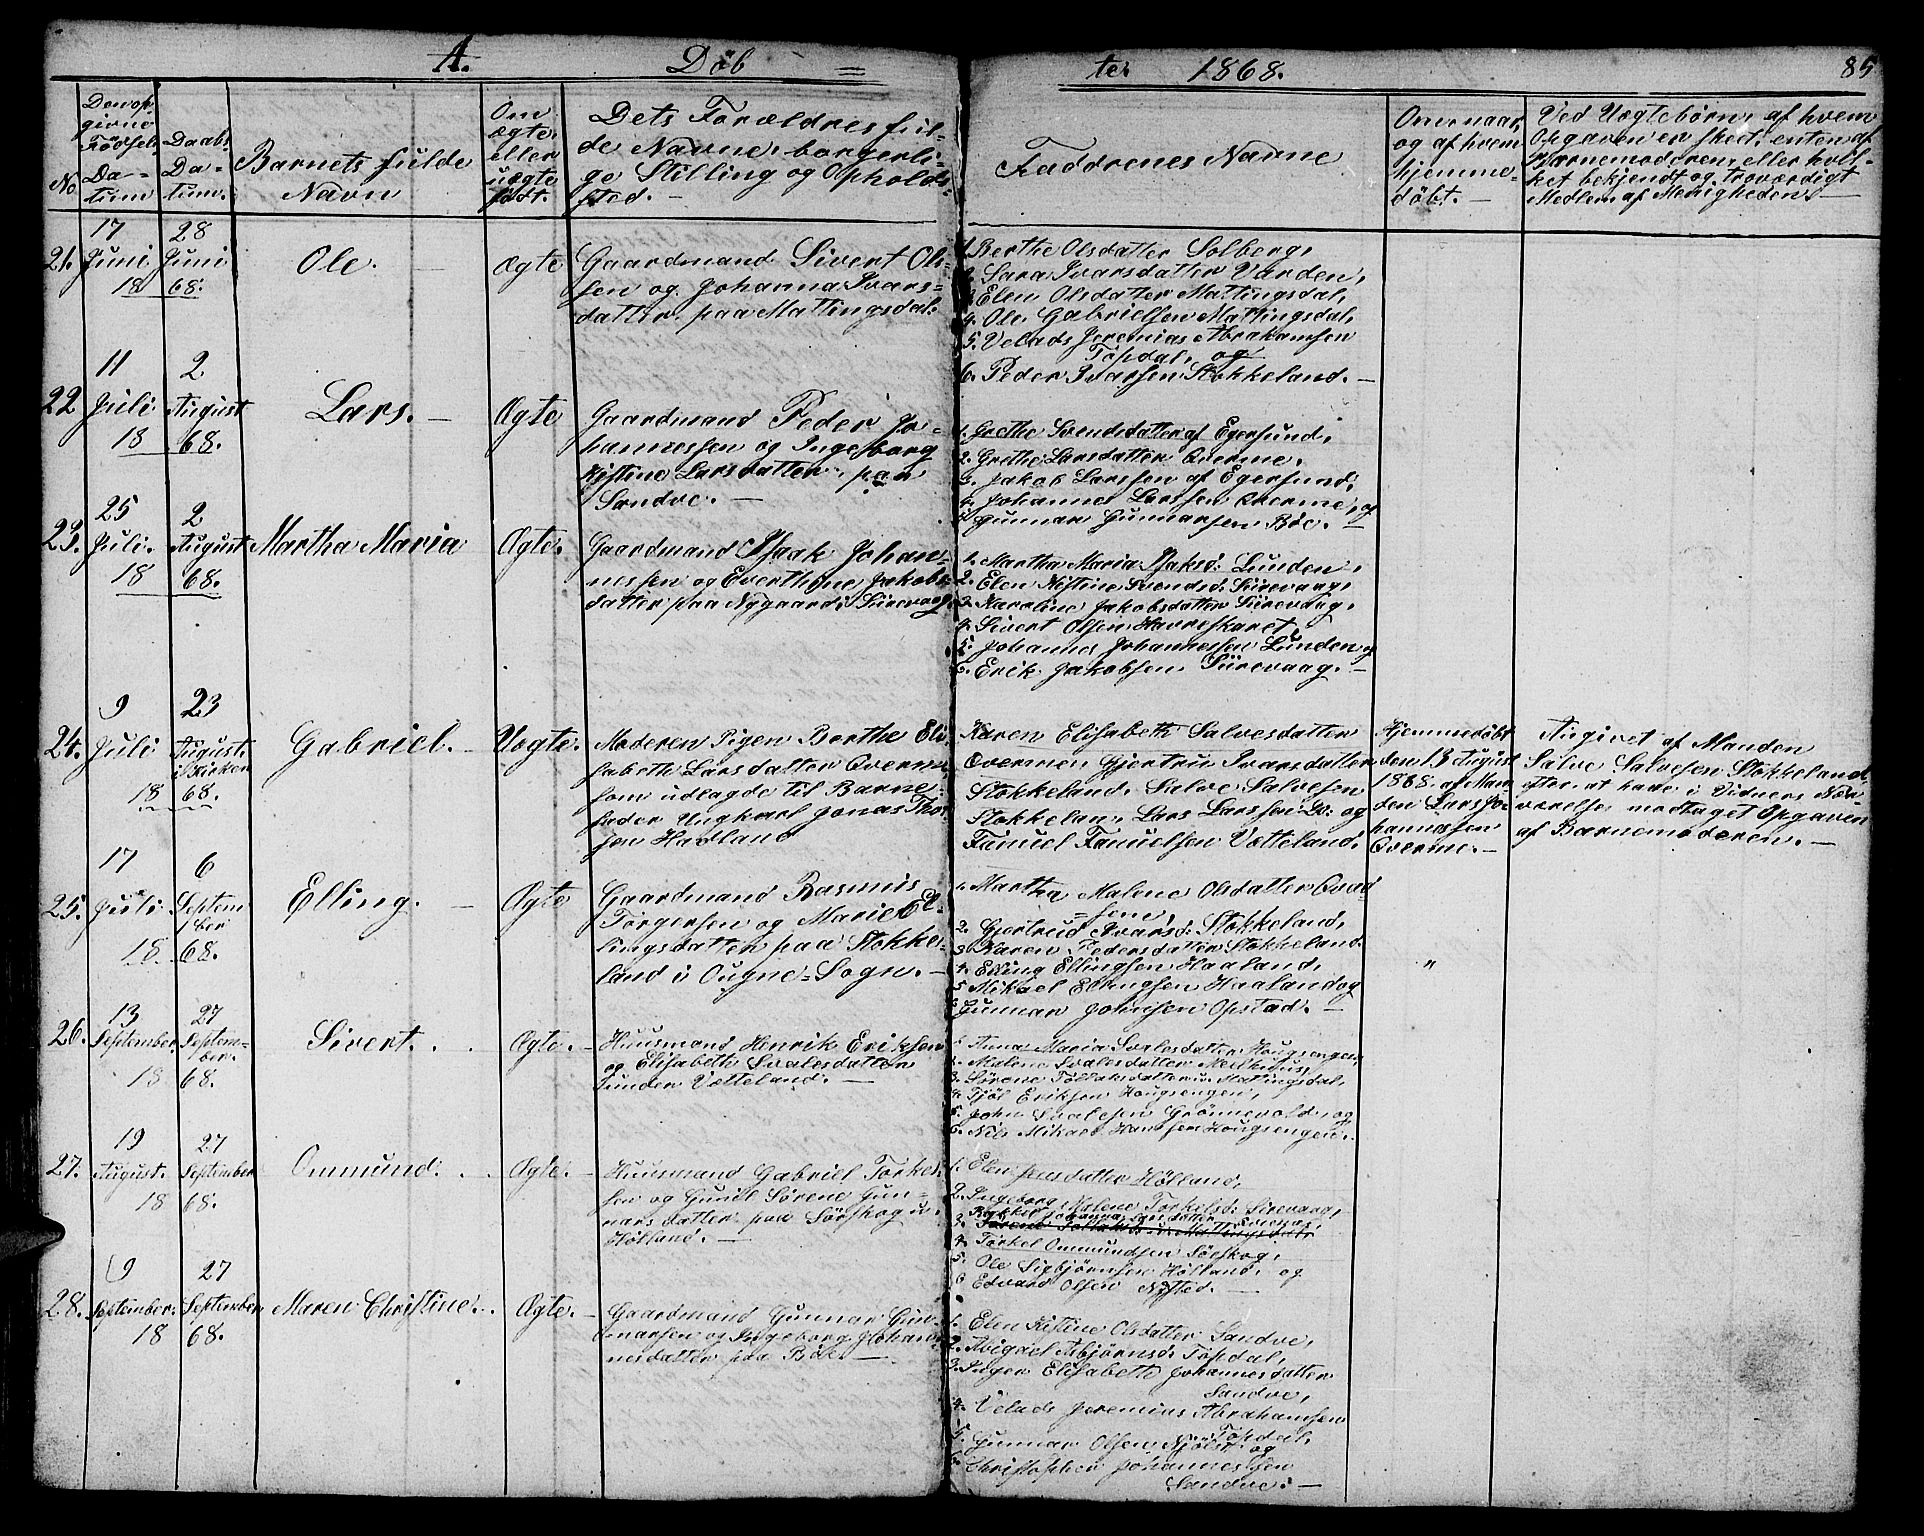 A. Døb=
ter 1868. 85
No
Den opgivne Fødsels-Datum
Daabs-Datum.
Barnets fulde Navn
Om ægte eller uægte født.
Dets Forældres fulde Navne, borgerlige Stilling og Opholdssted.
Faddrenes Navne
Om, naar, og af hvem hjemmedøbt.
Ved Uægtebørn, af hvem Opgaven er skeet, enten af Barnemoderen, eller hvilket bekjendt og troværdigt Medlem af Menigheden.
21. 17 Juni 18
28 Juni 68.
Ole.
Ægte
Gaardmand Sivert Ol-
sen og Johanna Ivars-
datter paa Mattingsdal.
1. Berthe Olsdatter Solberg,
2. Sara Ivarsdatter Varden,
3. Elen Olsdatter Mattingsdal,
4. Ole Gabrielsen Mattingsdal,
5. Velads Jeremias Abrahamsen
Topdal, og
6. Peder Ivarsen Stokkeland.
22 11 Juli 18
2 August 68.
Lars.
Ægte
Gaardmand Peder Jo-
hannessen og Ingeborg
Kistine Larsdatter, paa
Sandve.
1. Grethe Svendsdatter af Egersund,
2. Grethe Larsdatter Qverme,
3. Jakob Larssen af Egersund,
4. Johannes Larssen Qverme, og
5. Gunnar Gunnarsen Böe.
23. 25 Juli. 18
2 August 68.
Martha Maria
Ægte.
Gaardmand Isaak Johan-
nessen og Everthine Jakobs-
datter paa Nygaard, Sirevaag.
1. Martha Maria Isaksd: Lunden,
2. Elen Kistine Svendsd: Sirevaag,
3. Karoline Jakobsdatter Sirevaag,
4. Sivert Olsen Havreskaret,
5. Johannes Johannessen Lunden og
6. Erik Jakobsen Sirevaag.
24. 9 Juli 18
23 August i Kirken 68.
Gabriel.
Uægte.
Moderen Pigen Berthe Eli-
sabeth Larsdatter Qverme
som udlagde til Barne-
fader Ungkarl Jonas Thor-
sen Hadland
Karen Elisabeth Salvesdatter
Qverme, Gjertrud Ivarsdatter
Stokkeland, Salve Salvesen
Stokkelan, Lars Larssen Qv. og
Fanuel Fanuelsen Vetteland.
Hjemmedøbt
den 13 August
1868. af Man
den Lars Jo-
hannessen
Qverme.
Angivet af Manden
Salve Salvesen Stokkeland,
efter at have i Vidners Nær-
værelse modtaget Opgaven
af Barnemoderen.
25. 17 Juli 18
6 September 68.
Elling.
Ægte
Gaardmand Rasmus
Torgersen og Marie El-
lingsdatter paa Stokke-
land i Ougne-Sogn.
1. Martha Malene Olsdatter Quad
sem,
2. Gjertrud Ivarsd: Stokkeland,
3 Karen Pedersdatter Stokkeland.
4. Elling Ellingsen Haaland,
5 Mikael Ellingsen Haaland og
6 Gunnar Jonssen Opstad.
"
26. 13 September 18
27 September. 68.
Sivert.
Ægte.
Huusmand Henrik Eriksen
og Elisabeth Svalesdatter
under Vetteland.
1 Anna Maria Svalesdatter Hougsengen,
2. Malene Svalesdatter Melhuus,
3. Sörene Tollaksdatter Mattingsdal,
4. Tjöl Eriksen Hougsengen,
5. John Svalesen Grönnevold, og
6. Nils Mikael Hansen Hougsengen.
27. 19 August. 18
27 September 68.
Ommund.
Ægte.
Huusmand Gabriel Torkel-
sen og Gunild Sörene Gun-
narsdatter paa Sörskog u.
Hölland.
1. Elen Jensdatter Hölland,
2. Ingeborg Malene Torkelsd: Sirevaag,
4. Torkel Ommundsen Sörskog,
5. Ole Sigbjörnsen Hölland, og
6 Edvard Olsen Nysted.
28. 9 September. 18
27 September 68.
Maren Christine.
Ægte.
Gaardmand Gunnar Gun-
narsen og Ingeborg Johan-
nesdatter paa Böe.
1. Elen Kistine Olsdatter Sandve,
2. Abigael Asbjörnsd: Topdal,
3. Inger Elisabeth Johannesdatter
Sandve,
4. Velads Jeremias Abrahamsen
Topdal,
5. Gunnar Olsen Njölst, og
6. Christopher Johannessen
Sandve.